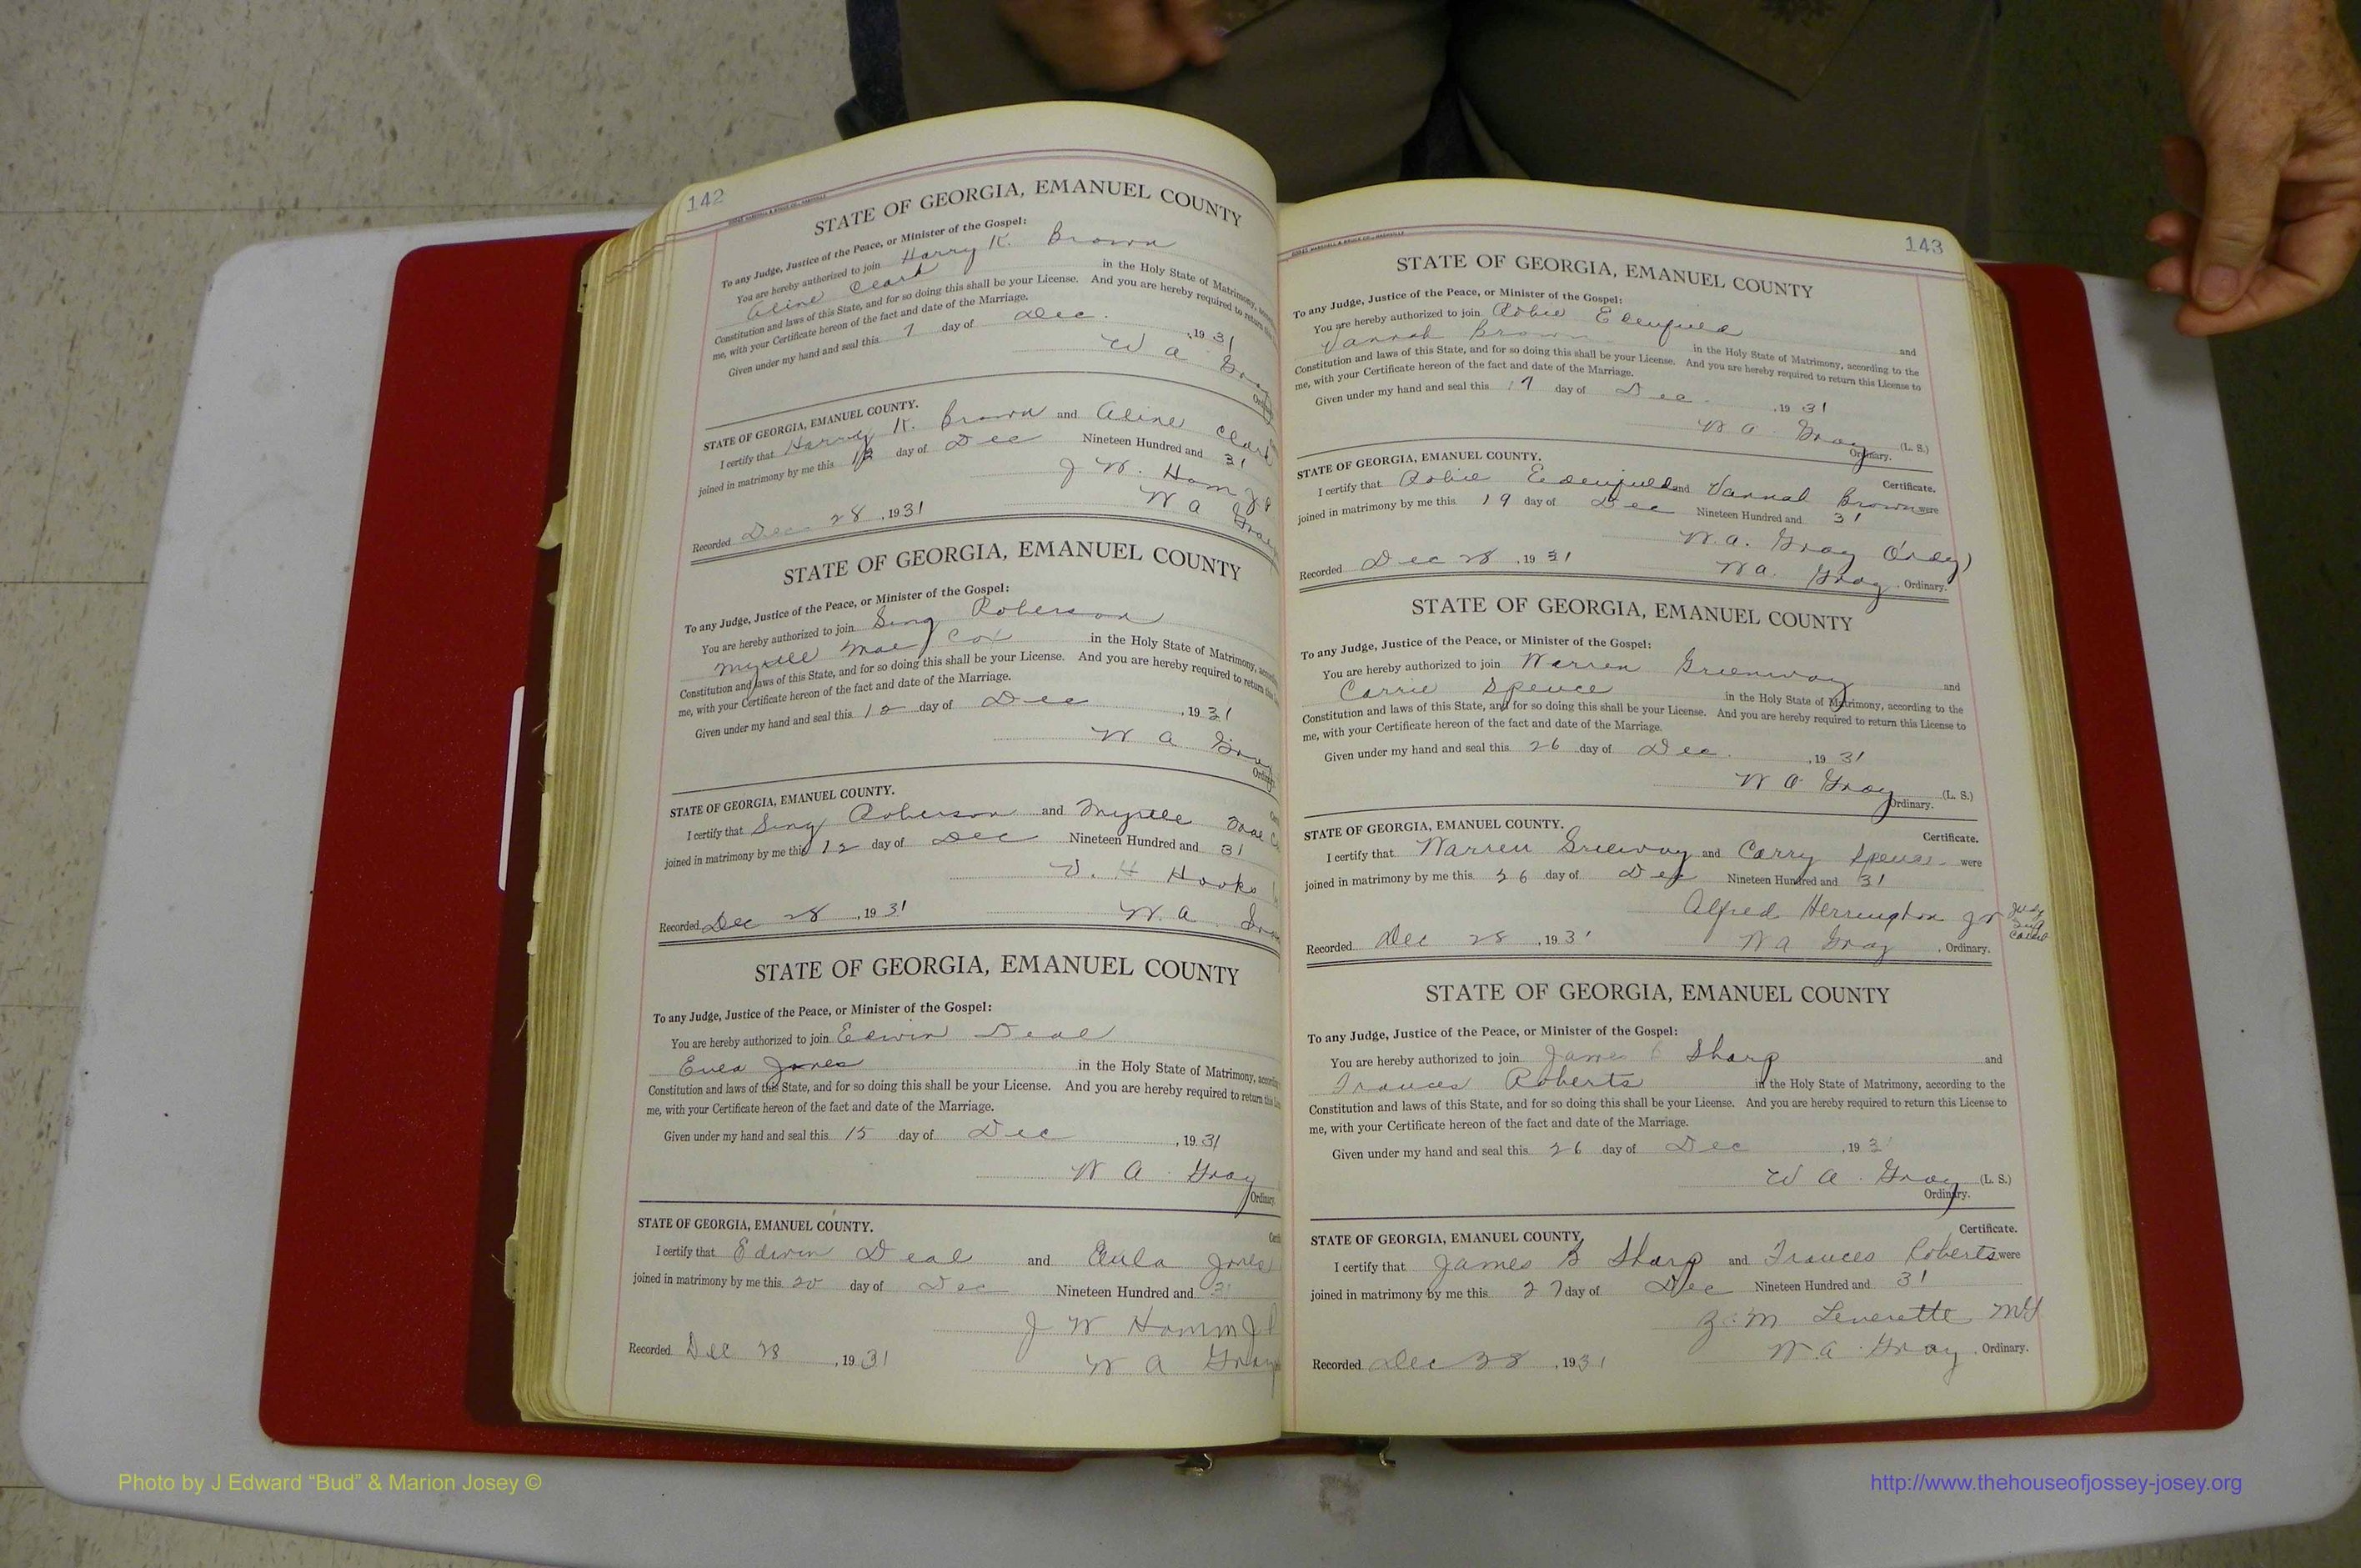 142
STATE OF GEORGIA, EMANUEL COUNTY
To any Judge, Justice of the Peace, or Minister of the Gospel:
You are hereby authorized to join Harry K. Brown
Aline Clark in the Holy State of Matrimony,
Constitution and laws of this State, and for so doing this shall be your License. And you are hereby required to return
me, with your Certificate hereon of the fact and date of the Marriage.
Given under my hand and seal this 7 day of Dec. , 19 31
W A Gray
STATE OF GEORGIA, EMANUEL COUNTY.
I certify that Harry K. Brown and Aline Clark
joined in matrimony by me this day of Dec Nineteen Hundred and 31
J W. Ham
W A
Recorded Dec 28 , 19 31
STATE OF GEORGIA, EMANUEL COUNTY
To any Judge, Justice of the Peace, or Minister of the Gospel:
You are hereby authorized to join Sing Roberson
Myrtle Mae Cox in the Holy State of Matrimony,
Constitution and laws of this State, and for so doing this shall be your License. And you are hereby required to return
me, with your Certificate hereon of the fact and date of the Marriage.
Given under my hand and seal this 12 day of Dec , 19 31
W A
STATE OF GEORGIA, EMANUEL COUNTY.
I certify that Sing Roberson and Myrtle Mae
joined in matrimony by me this 12 day of Dec Nineteen Hundred and 31
H Hooks
Recorded Dec 28 , 19 31 W. A
STATE OF GEORGIA, EMANUEL COUNTY
To any Judge, Justice of the Peace, or Minister of the Gospel:
You are hereby authorized to join Edwin Deal
Eula Jones in the Holy State of Matrimony,
Constitution and laws of this State, and for so doing this shall be your License. And you are hereby required to return this
me, with your Certificate hereon of the fact and date of the Marriage.
Given under my hand and seal this 15 day of Dec , 19 31
W A Gray
Ordinary.
STATE OF GEORGIA, EMANUEL COUNTY.
I certify that Edwin Deal and Eula Jones
joined in matrimony by me this 20 day of Dec Nineteen Hundred and 31
J W Hamm
Recorded Dec 28 , 19 31 W A Gray
143
STATE OF GEORGIA, EMANUEL COUNTY
To any Judge, Justice of the Peace, or Minister of the Gospel:
You are hereby authorized to join Robie Edenfield and
Vannah Brown in the Holy State of Matrimony, according to the
Constitution and laws of this State, and for so doing this shall be your License. And you are hereby required to return this License to
me, with your Certificate hereon of the fact and date of the Marriage.
Given under my hand and seal this day of Dec , 19 31
W A Gray (L. S.)
Ordinary.
STATE OF GEORGIA, EMANUEL COUNTY. Certificate.
I certify that Robie Edenfield and Vannah Brown were
joined in matrimony by me this 19 day of Dec Nineteen Hundred and 31
W. A. Gray (Ordy)
Recorded Dec 28 , 19 31 W A. Gray , Ordinary.
STATE OF GEORGIA, EMANUEL COUNTY
To any Judge, Justice of the Peace, or Minister of the Gospel:
You are hereby authorized to join Warren Greenway and
Carrie Spence in the Holy State of Matrimony, according to the
Constitution and laws of this State, and for so doing this shall be your License. And you are hereby required to return this License to
me, with your Certificate hereon of the fact and date of the Marriage.
Given under my hand and seal this 26 day of Dec. , 19 31
W A Gray (L. S.)
Ordinary.
STATE OF GEORGIA, EMANUEL COUNTY. Certificate.
I certify that Warren Greenway and Carry Spense were
joined in matrimony by me this 26 day of Dec Nineteen Hundred and 31
Alfred Herrington Jr
Recorded Dec 28 , 19 31 W A Gray , Ordinary.
STATE OF GEORGIA, EMANUEL COUNTY
To any Judge, Justice of the Peace, or Minister of the Gospel:
You are hereby authorized to join James B Sharp and
Frances Roberts in the Holy State of Matrimony, according to the
Constitution and laws of this State, and for so doing this shall be your License. And you are hereby required to return this License to
me, with your Certificate hereon of the fact and date of the Marriage.
Given under my hand and seal this 26 day of Dec , 19 31
W A Gray (L. S.)
Ordinary.
STATE OF GEORGIA, EMANUEL COUNTY. Certificate.
I certify that James B Sharp and Frances Roberts were
joined in matrimony by me this 27 day of Dec Nineteen Hundred and 31
Z. M Leverette MG
Recorded Dec 28 , 19 31 W. A Gray , Ordinary.
Photo by J Edward “Bud” & Marion Josey ©
http://www.thehouseofjossey-josey.org